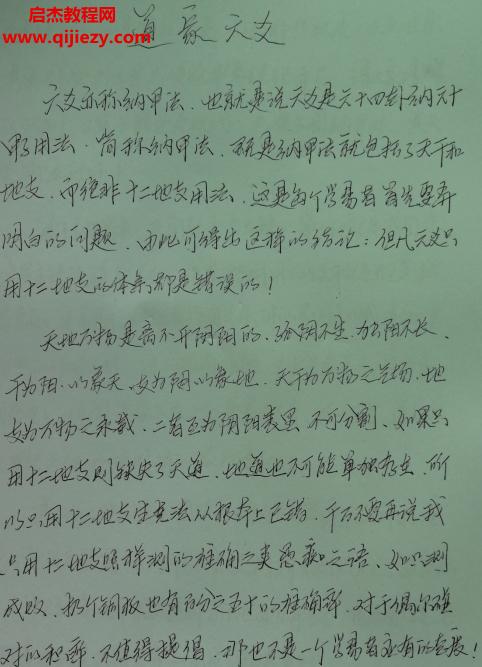 启杰教程网
www.qijiezy.com
道家六爻
六爻亦称纳甲法，也就是说六爻是六十四卦纳六十
甲子用法，简称纳甲法，既是纳甲法就包括了天干和
地支，而绝非十二地支用法，这是每个学易者首先要弄
明白的问题，由此可得出这样的结论：但凡六爻只
用十二地支的体系都是错误的！
天地万物是离不开阴阳的，孤阴不生，独阳不长，
干为阳，以象天，支为阴以象地，天干为万物之气场，地
支为万物之承载，二者互为阴阳表里，不可分割，如果只
用十二地支则缺失了天道，地道也不可能单独存在，所
以只用十二地支定克法从根本上已错，千万不要再说我
只用十二地支照样测的准确之类愚痴之语，如只测
成败，抛个铜板也有百分之五十的准确率，对于偶尔碰
对的和碎，不值得提倡，那也不是一个学易者应有的态度！